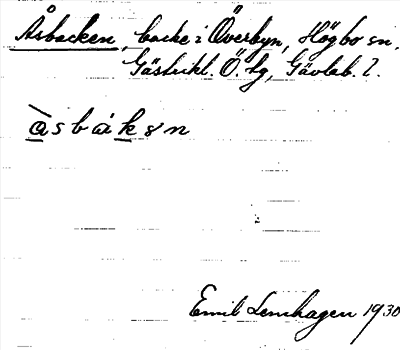 Åsbacken, backe i Överbyn, Högbo sn,
Gästrikl. Ö. hg, Gävleb. l.
àsbàkən
Emil Lenhagen 1930